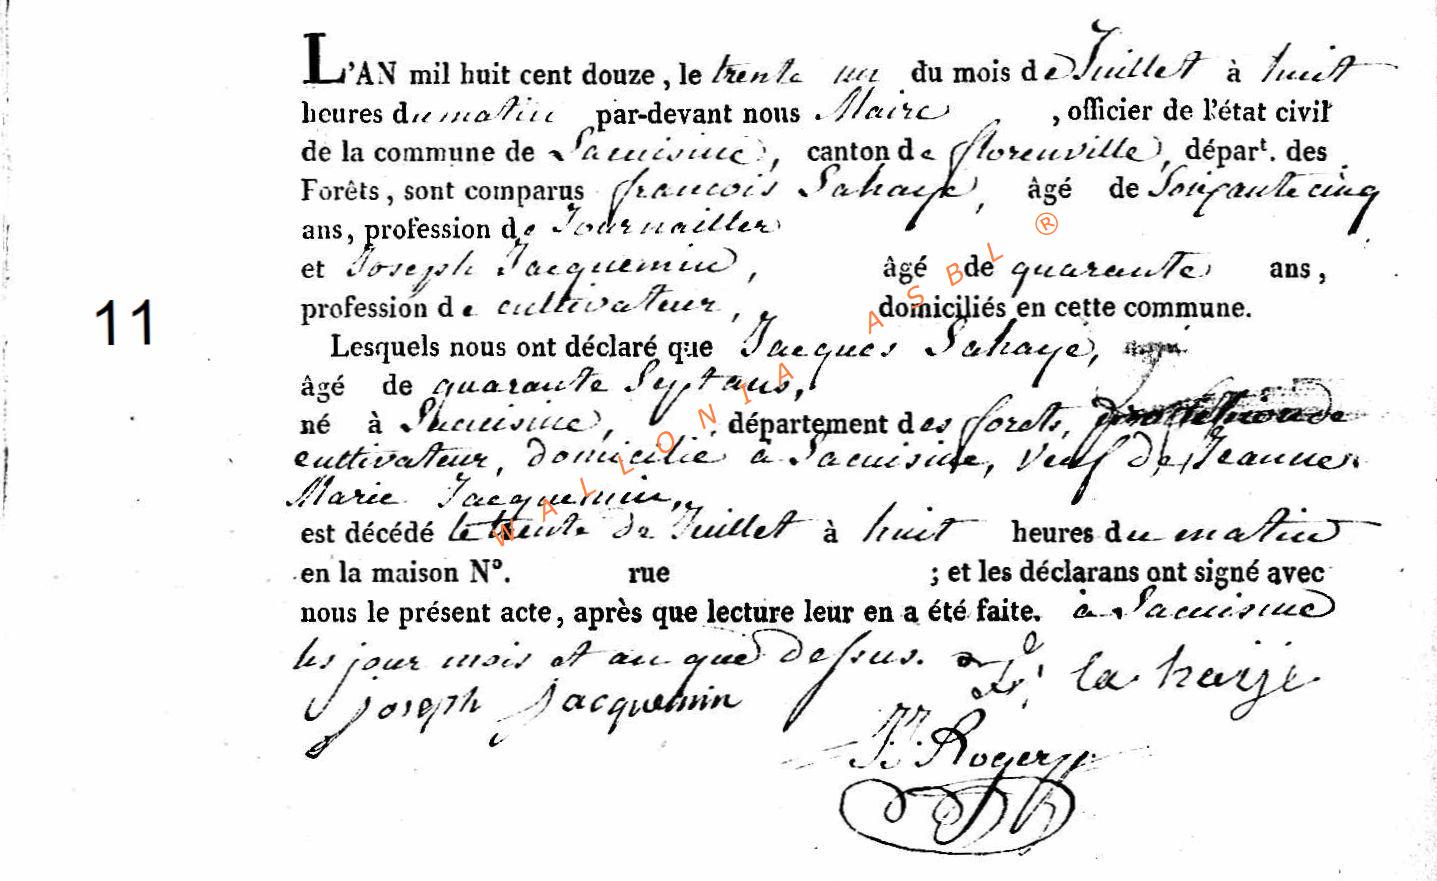 L'AN mil huit cent douze, le trente un du mois de Juillet à huit
heures du matin par-devant nous Maire, officier de l'état civil
de la commune de Lacuisine, canton de florenville, départ. des
Forêts, sont comparus francois Lahaye, âgé de Soixante cinq
ans, profession de Journailler
et Joseph Jacquemin, âgé de quarante ans,
profession de cultivateur, domiciliés en cette commune.
11
Lesquels nous ont déclaré que Jacques Lahaye,
âgé de quarante Sept ans,
né à Lacuisine, département des forets,
cultivateur, domicilié à Lacuisine, veuf de Jeanne
Marie Jacquemin,
est décédé le trente de Juillet à huit heures du matin
en la maison N°. rue ; et les déclarans ont signé avec
nous le présent acte, après que lecture leur en a été faite. à Lacuisine
les jour mois et an que dessus. la haije
joseph jacquemin
Rogery
WALLONIA ASBL ®